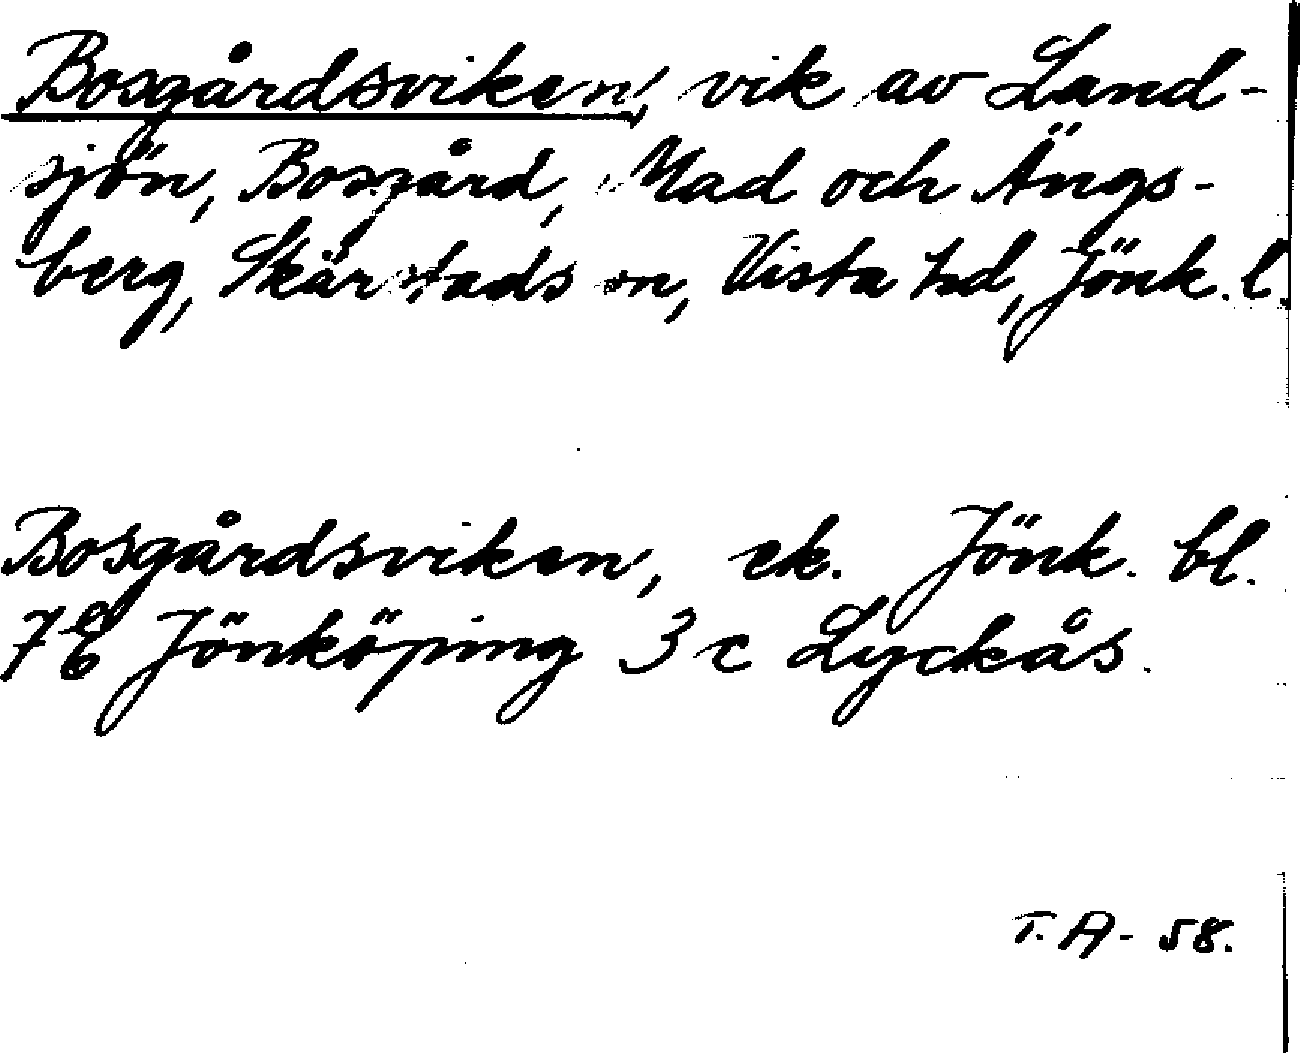 Bosgårdsviken, vik av Land-
sjön, Bosgård, Mad och Ängs-
berg, Skärstads sn, Vista hd, Jönk. l.
Bosgårdsviken, ek. Jönk. bl.
7 E Jönköping 3 c Lyckås.
T. A - 58.